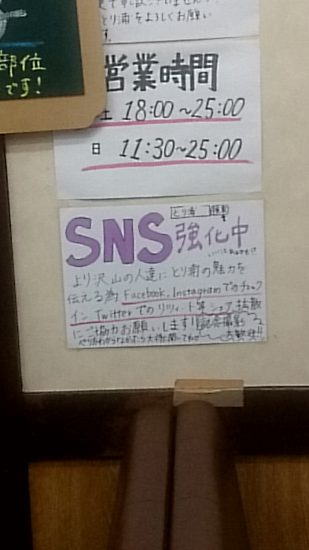 部位
です!
とり甫をよろしくお願い
す。
営業時間
土 18:00~25:00
日 11:30~25:00
とり甫
SNS強化中
より沢山の人達にとり甫の魅力を
伝える為Facebook、Instagramでのチェック
イン Twitterでのリツイート等シェア、拡散
にご協力お願いします!
大歓迎!!